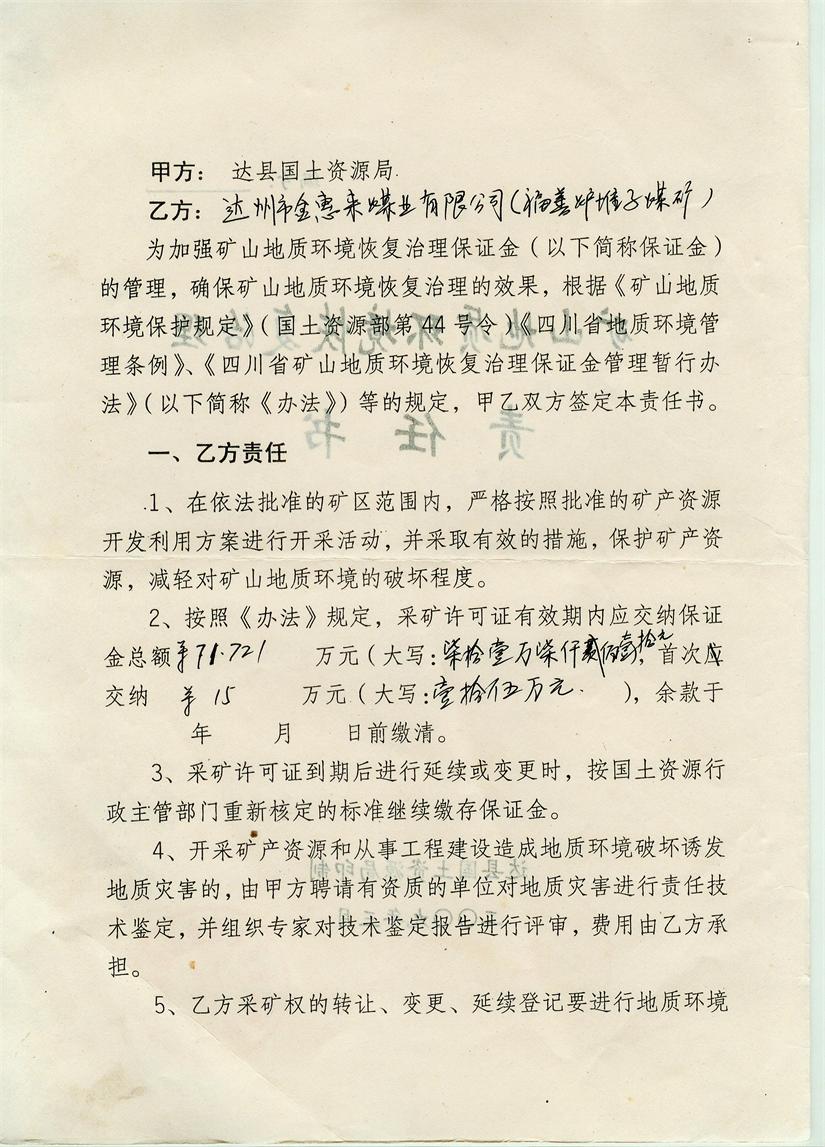 甲方： 达县国土资源局
乙方：达州市金惠来煤业有限公司(福善炉堆子煤矿)
为加强矿山地质环境恢复治理保证金（以下简称保证金）
的管理，确保矿山地质环境恢复治理的效果，根据《矿山地质
环境保护规定》（国土资源部第44号令）《四川省地质环境管
理条例》、《四川省矿山地质环境恢复治理保证金管理暂行办
法》（以下简称《办法》）等的规定，甲乙双方签定本责任书。
一、乙方责任
1、在依法批准的矿区范围内，严格按照批准的矿产资源
开发利用方案进行开采活动，并采取有效的措施，保护矿产资
源，减轻对矿山地质环境的破坏程度。
2、按照《办法》规定，采矿许可证有效期内应交纳保证
金总额￥71.721 万元（大写：柒拾壹万柒仟贰佰壹拾元，首次应
交纳 ￥15 万元（大写：壹拾伍万元 ），余款于
年 月 日前缴清。
3、采矿许可证到期后进行延续或变更时，按国土资源行
政主管部门重新核定的标准继续缴存保证金。
4、开采矿产资源和从事工程建设造成地质环境破坏诱发
地质灾害的，由甲方聘请有资质的单位对地质灾害进行责任技
术鉴定，并组织专家对技术鉴定报告进行评审，费用由乙方承
担。
5、乙方采矿权的转让、变更、延续登记要进行地质环境